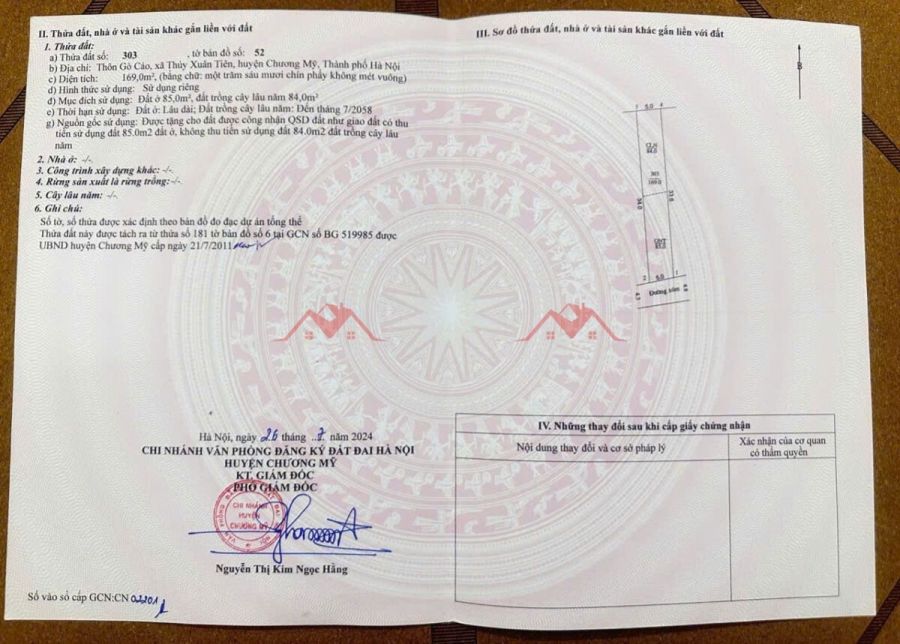 II. Thửa đất, nhà ở và tài sản khác gắn liền với đất
1. Thửa đất:
a) Thửa đất số: 303 , tờ bản đồ số: 52
b) Địa chỉ: Thôn Gò Cáo, xã Thủy Xuân Tiên, huyện Chương Mỹ, Thành phố Hà Nội
c) Diện tích: 169,0m², (bằng chữ: một trăm sáu mươi chín phẩy không mét vuông)
d) Hình thức sử dụng: Sử dụng riêng
đ) Mục đích sử dụng: Đất ở 85,0m², đất trồng cây lâu năm 84,0m²
e) Thời hạn sử dụng: Đất ở: Lâu dài; Đất trồng cây lâu năm: Đến tháng 7/2058
g) Nguồn gốc sử dụng: Được tặng cho đất được công nhận QSD đất như giao đất có thu
tiền sử dụng đất 85.0m2 đất ở, không thu tiền sử dụng đất 84.0m2 đất trồng cây lâu
năm
2. Nhà ở: -/-.
3. Công trình xây dựng khác: -/-.
4. Rừng sản xuất là rừng trồng:-/-.
5. Cây lâu năm: -/-.
6. Ghi chú:
Số tờ, số thửa được xác định theo bản đồ đo đạc dự án tổng thể
Thửa đất này được tách ra từ thửa số 181 tờ bản đồ số 6 tại GCN số BG 519985 được
UBND huyện Chương Mỹ cấp ngày 21/7/2011
Hà Nội, ngày 26 tháng 7 năm 2024
CHI NHÁNH VĂN PHÒNG ĐĂNG KÝ ĐẤT ĐAI HÀ NỘI
HUYỆN CHƯƠNG MỸ
KT. GIÁM ĐỐC
PHÓ GIÁM ĐỐC
CHI NHÁNH
HUYỆN
CHƯƠNG MỸ
Nguyễn Thị Kim Ngọc Hằng
Số vào sổ cấp GCN:CN 02201
III. Sơ đồ thửa đất, nhà ở và tài sản khác gắn liền với đất
B
5.0
CLN
84.0
303
169.0
34.0
33.8
ONT
85.0
2 5.0 1
Đường xóm
IV. Những thay đổi sau khi cấp giấy chứng nhận
Nội dung thay đổi và cơ sở pháp lý
Xác nhận của cơ quan
có thẩm quyền